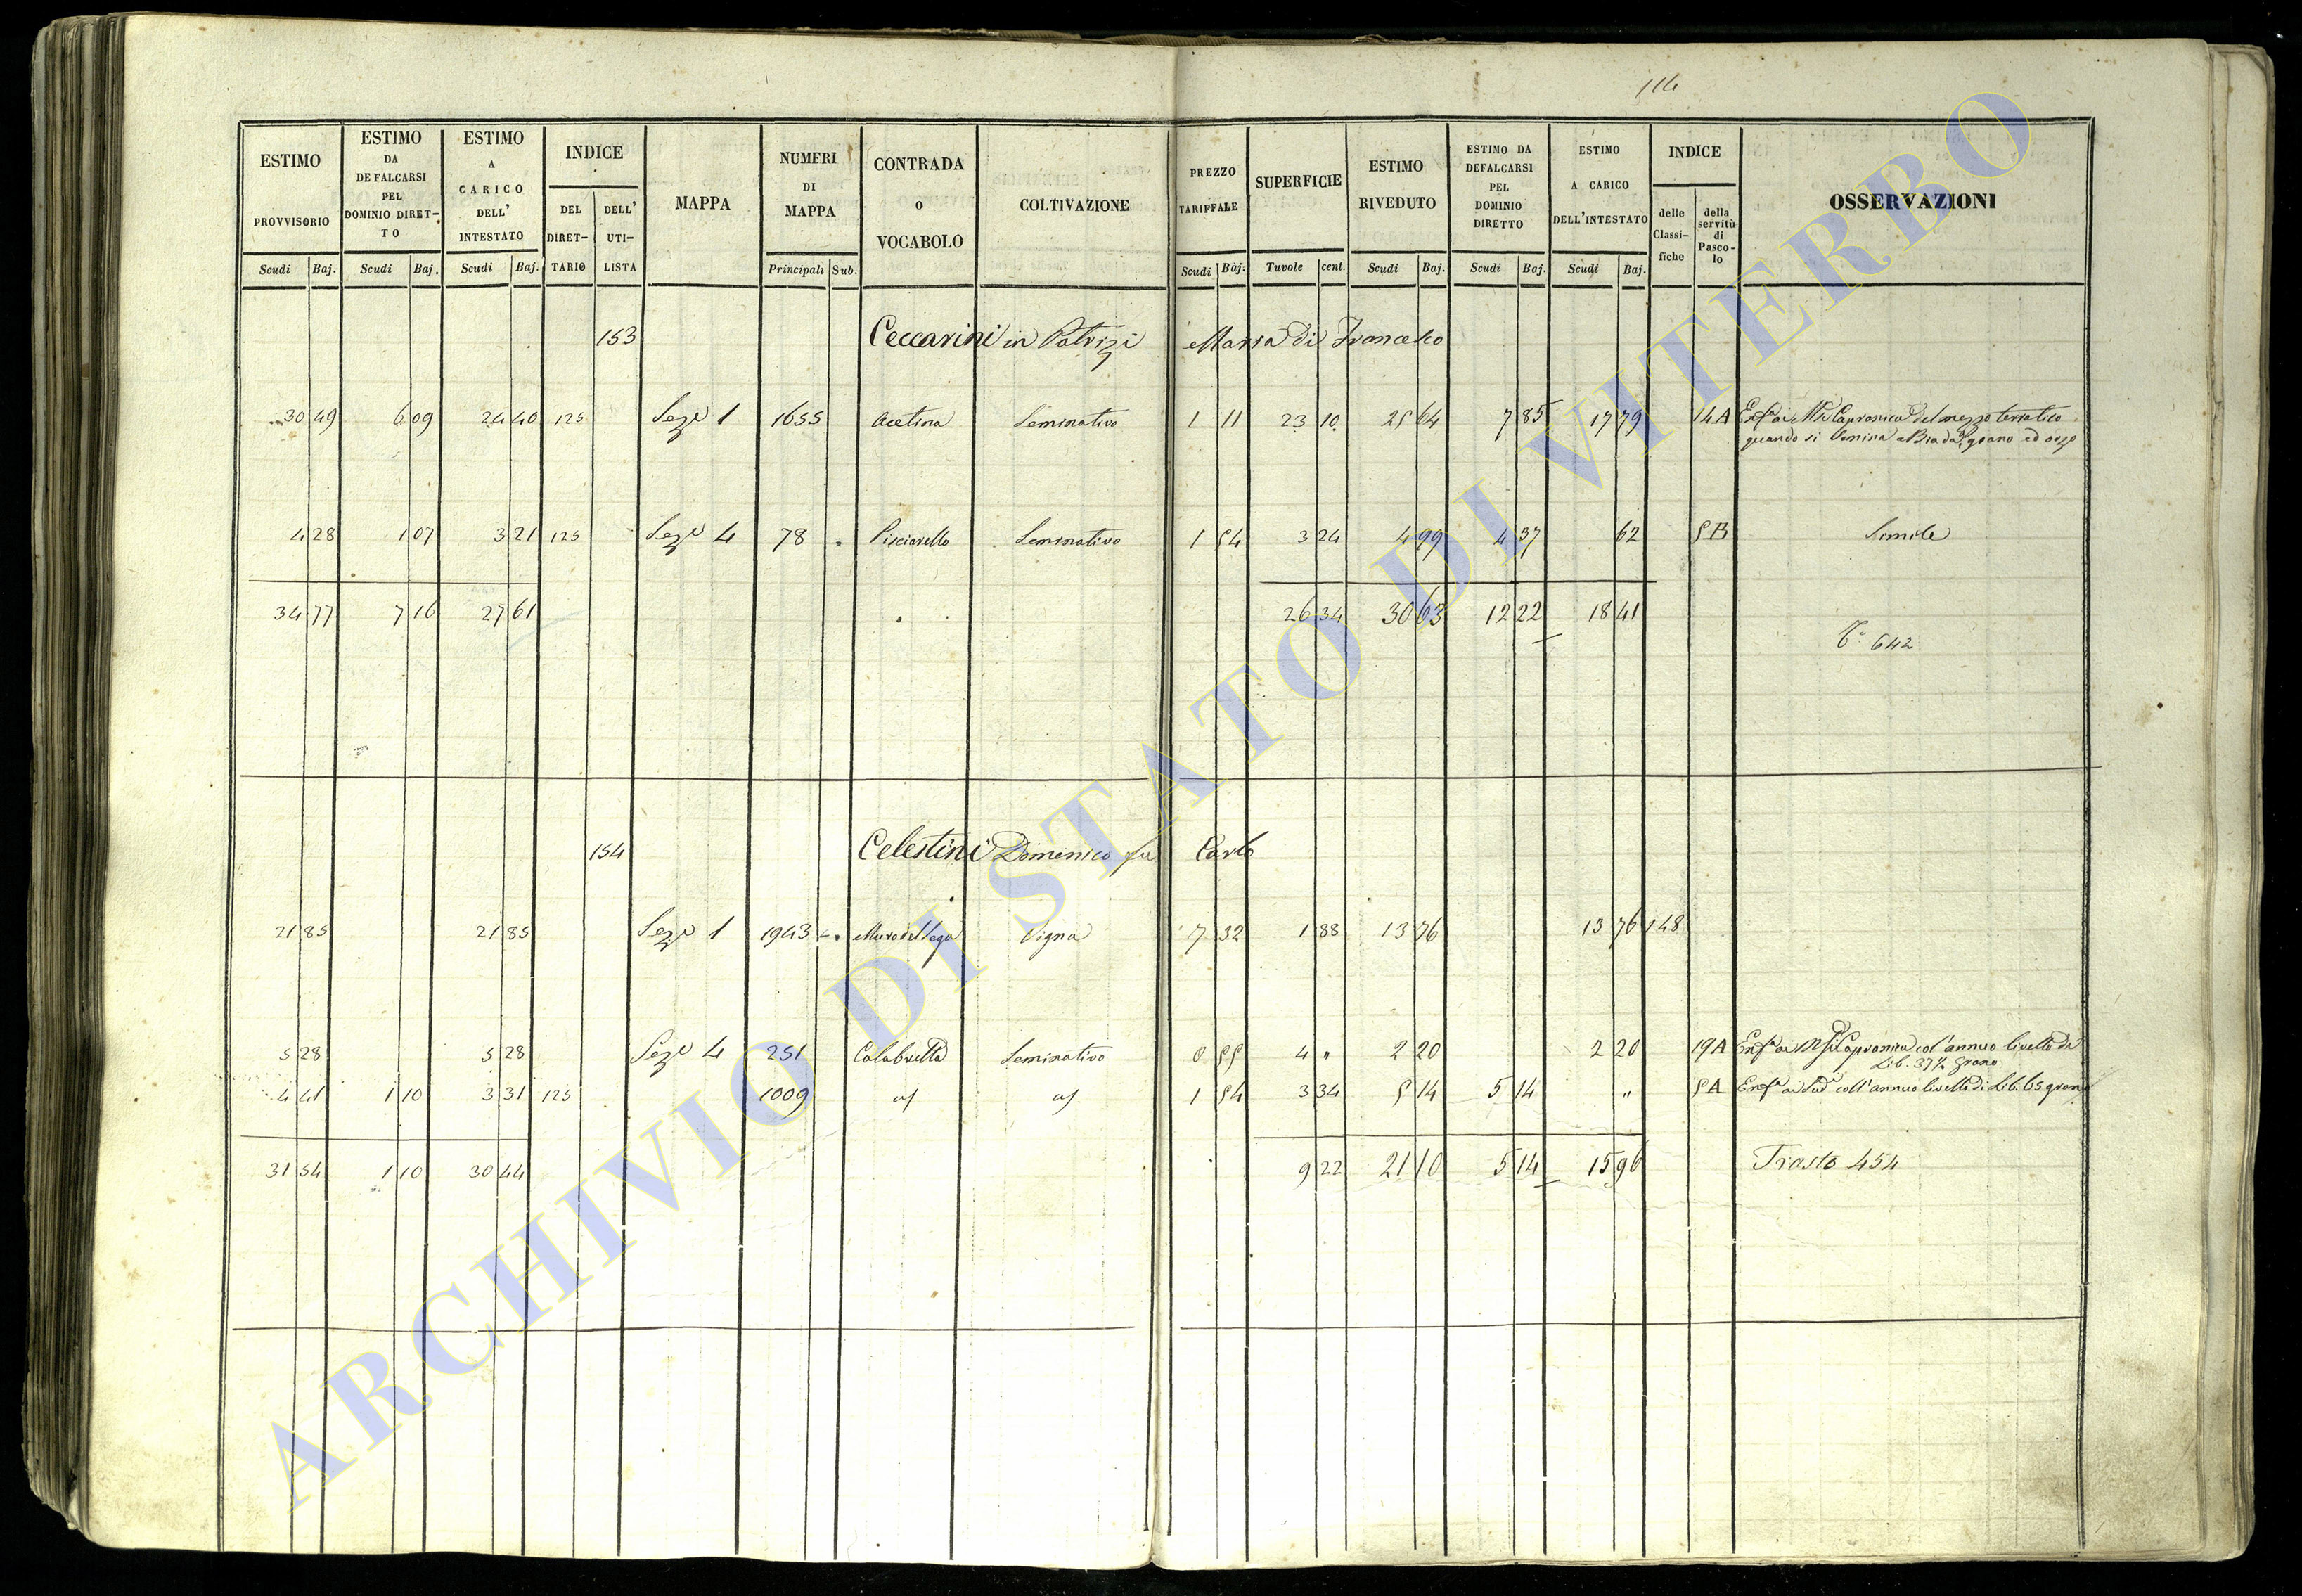 114
ESTIMO PROVVISORIO Scudi Baj.
ESTIMO DA DEFALCARSI PEL DOMINIO DIRET-TO Scudi Baj.
ESTIMO A CARICO DELL' INTESTATO Scudi Baj.
INDICE DEL DIRET-TARIO DELL' UTI-LISTA
MAPPA
NUMERI DI MAPPA Principali Sub.
CONTRADA O VOCABOLO
COLTIVAZIONE
PREZZO TARIFFALE Scudi Baj.
SUPERFICIE Tavole cent.
ESTIMO RIVEDUTO Scudi Baj.
ESTIMO DA DEFALCARSI PEL DOMINIO DIRETTO Scudi Baj.
ESTIMO A CARICO DELL'INTESTATO Scudi Baj.
INDICE delle Classi-fiche della servitù di Pasco-lo
OSSERVAZIONI
153 Ceccarini in Patrizi Maria di Francesco
30 49 6 09 24 40 125 Sez.e 1 1655 Acetina Seminativo 1 11 23 10 25 64 7 85 17 79 14 A Enf.a ai Capranica del mezzo terratico
quando si semina a Biada, grano ed orzo
4 28 1 07 3 21 125 Sez.e 4 78 Pisciarello Seminativo 1 54 3 24 4 99 4 37 62 5 B Simile
34 77 7 16 27 61 26 34 30 63 12 22 18 41
642
154 Celestini Domenico fu Carlo
21 85 21 85 Sez.e 1 1943 Muro del lega Vigna 7 32 1 88 13 76 13 76 148
5 28 5 28 Sez.e 4 251 Calabrella Seminativo 0 55 4 " 2 20 2 20 19 A Enf.a ai Capranica col'annuo livello di
Lib. 37½ grano
4 41 1 10 3 31 125 1009 1 54 3 34 5 14 5 14 " 5 A Enf.a ai Sud.i coll'annuo livello di Lib. 65 grano
31 54 1 10 30 44 9 22 21 10 5 14 15 96 Trasto 454
ARCHIVIO DI STATO DI VITERBO